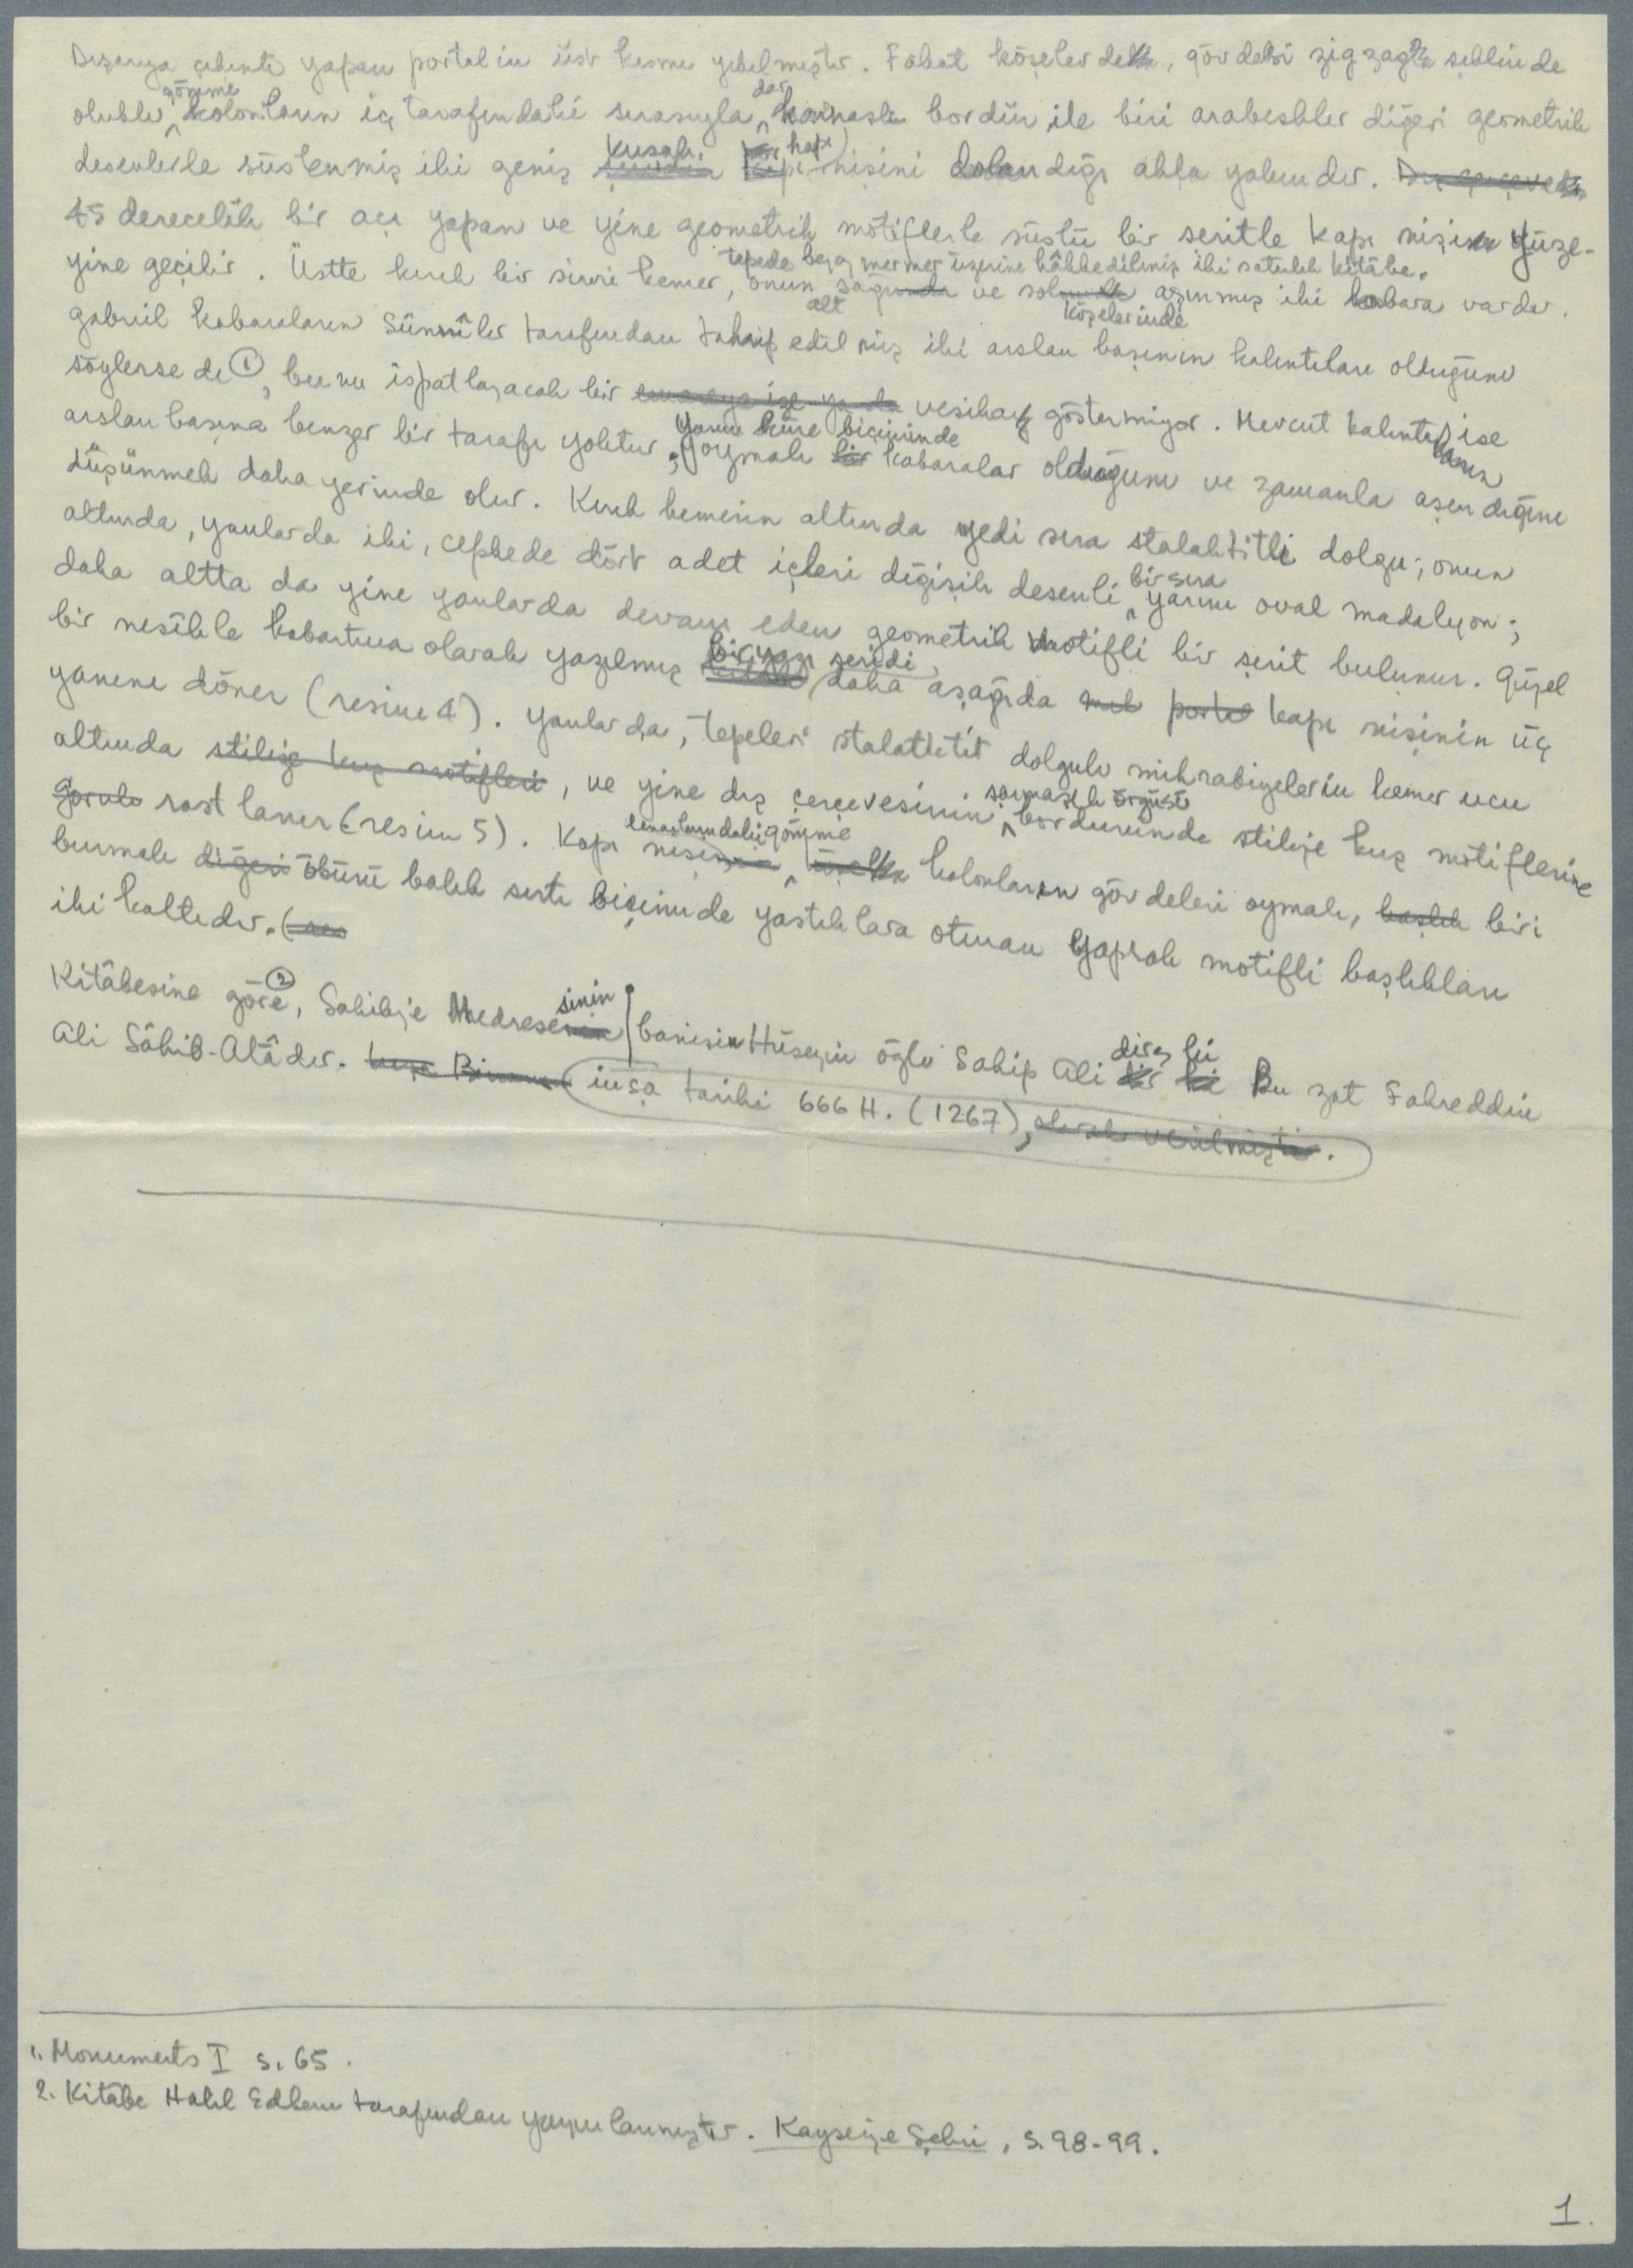 Dışarıya çıkıntı yapan portalin üst kısmı yıkılmıştır. Fakat köşelerdeki, gövdesi zigzag şeklinde
oluklu gömme kolonların iç tarafındaki sırasıyla dar bordür ile biri arabeskler diğeri geometrik
desenlerle süslenmiş iki geniş kuşağın kapı nişini dolandığı akla yakındır.
45 derecelik bir açı yapan ve yine geometrik motiflerle süslü bir şeritle kapı nişinin yüze-
yine geçilir. Üstte kırık bir sivri kemer, onun tepede beyaz mermer üzerine hâkkedilmiş iki satırlık kitâbe, sağ ve sol alt köşelerinde aşınmış iki kabara vardır.
Gabriil kabaraların Sünnîler tarafından tahrip edilmiş iki arslan başının kalıntıları olduğunu
söylerse de ①, bunu ispatlayacak bir vesika göstermiyor. Mevcut kalıntıların ise
arslan başına benzer bir tarafı yoktur; yarım küre biçiminde oymalı kabaralar olduğunu ve zamanla aşındığını
düşünmek daha yerinde olur. Kırık kemerin altında yedi sıra stalaktitli dolgu; onun
altında, yanlarda iki, cephede dört adet içleri değişik desenli bir sıra yarım oval madalyon;
daha altta da yine yanlarda devam eden geometrik motifli bir şerit bulunur. Güzel
bir nesihle kabartma olarak yazılmış bir yazı şeridi, daha aşağıda kapı nişinin üç
yanını döner (resim 4). Yanlarda, tepeleri stalaktit dolgulu mihrabiyelerin kemer ucu
altında stilize kuş motifleri, ve yine dış çerçevesinin sarmaşık örgüsü bordüründe stilize kuş motiflerine
rastlanır (resim 5). Kapı kenarlarındaki gömme kolonların gövdeleri oymalı, biri
burmalı diğeri öbürü balık sırtı biçiminde yastıklara oturan yaprak motifli başlıkları
iki katlıdır.
Kitâbesine göre ②, Sahibiye Medresesinin banisi Hüseyin oğlu Sahip Ali dir, ki Bu zat Fahreddin
Ali Sâhib-Atâdır. inşa tarihi 666 H. (1267), olarak verilmiştir.
1. Monuments I s. 65.
2. Kitâbe Halil Edhem tarafından yayınlanmıştır. Kayseriye Şehri, s. 98-99.
1.